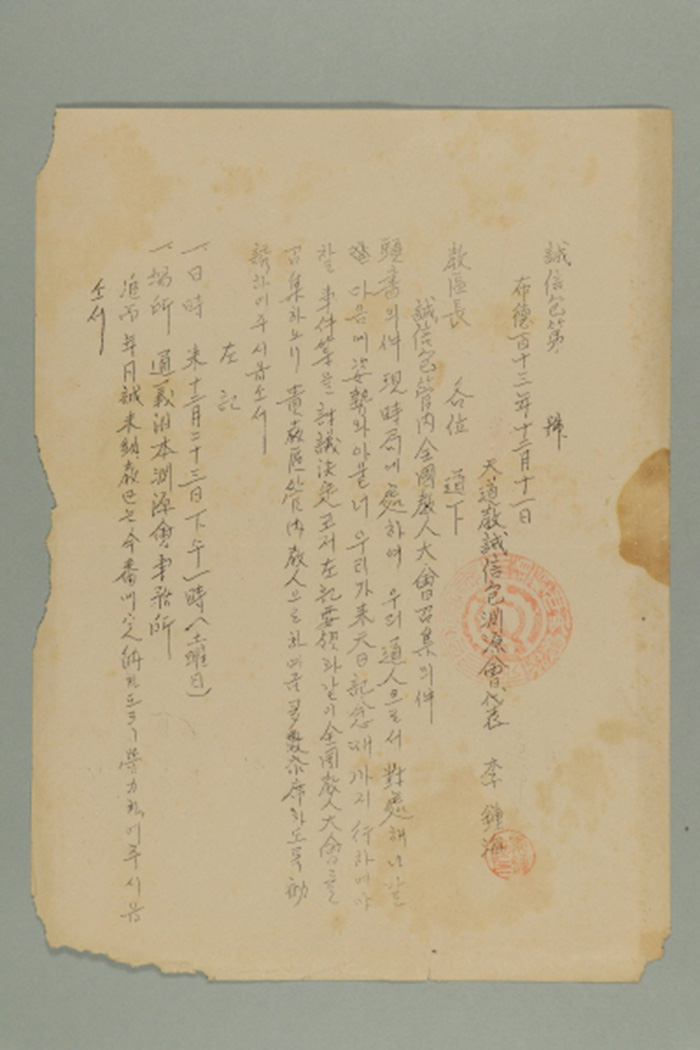 誠信包第　　號
布德百十三年十二月十一日
天道敎誠信包淵源會代表　李鍾海
敎區長　各位　道下
誠信包管內全國敎人大會召集의件
頭書의件 現時局에 處하여 우리 道人으로서 對處해나갈
다음에 姿勢와 아울너 우리가 來天日記念때까지 行하여야
할 事件等을 討議決定코저 左記要領과같이 全國敎人大會를
召集하오니 貴敎區管內敎人으로하여금 多數參席하도록 勸
하여주시옵소서
左記
一 日時　來十二月二十三日下午一時(土曜日)
一 場所　通義洞本淵源會事務所
追而 年月誠未納敎區는 今番에 完納되도록 努力하여주시옵
소서